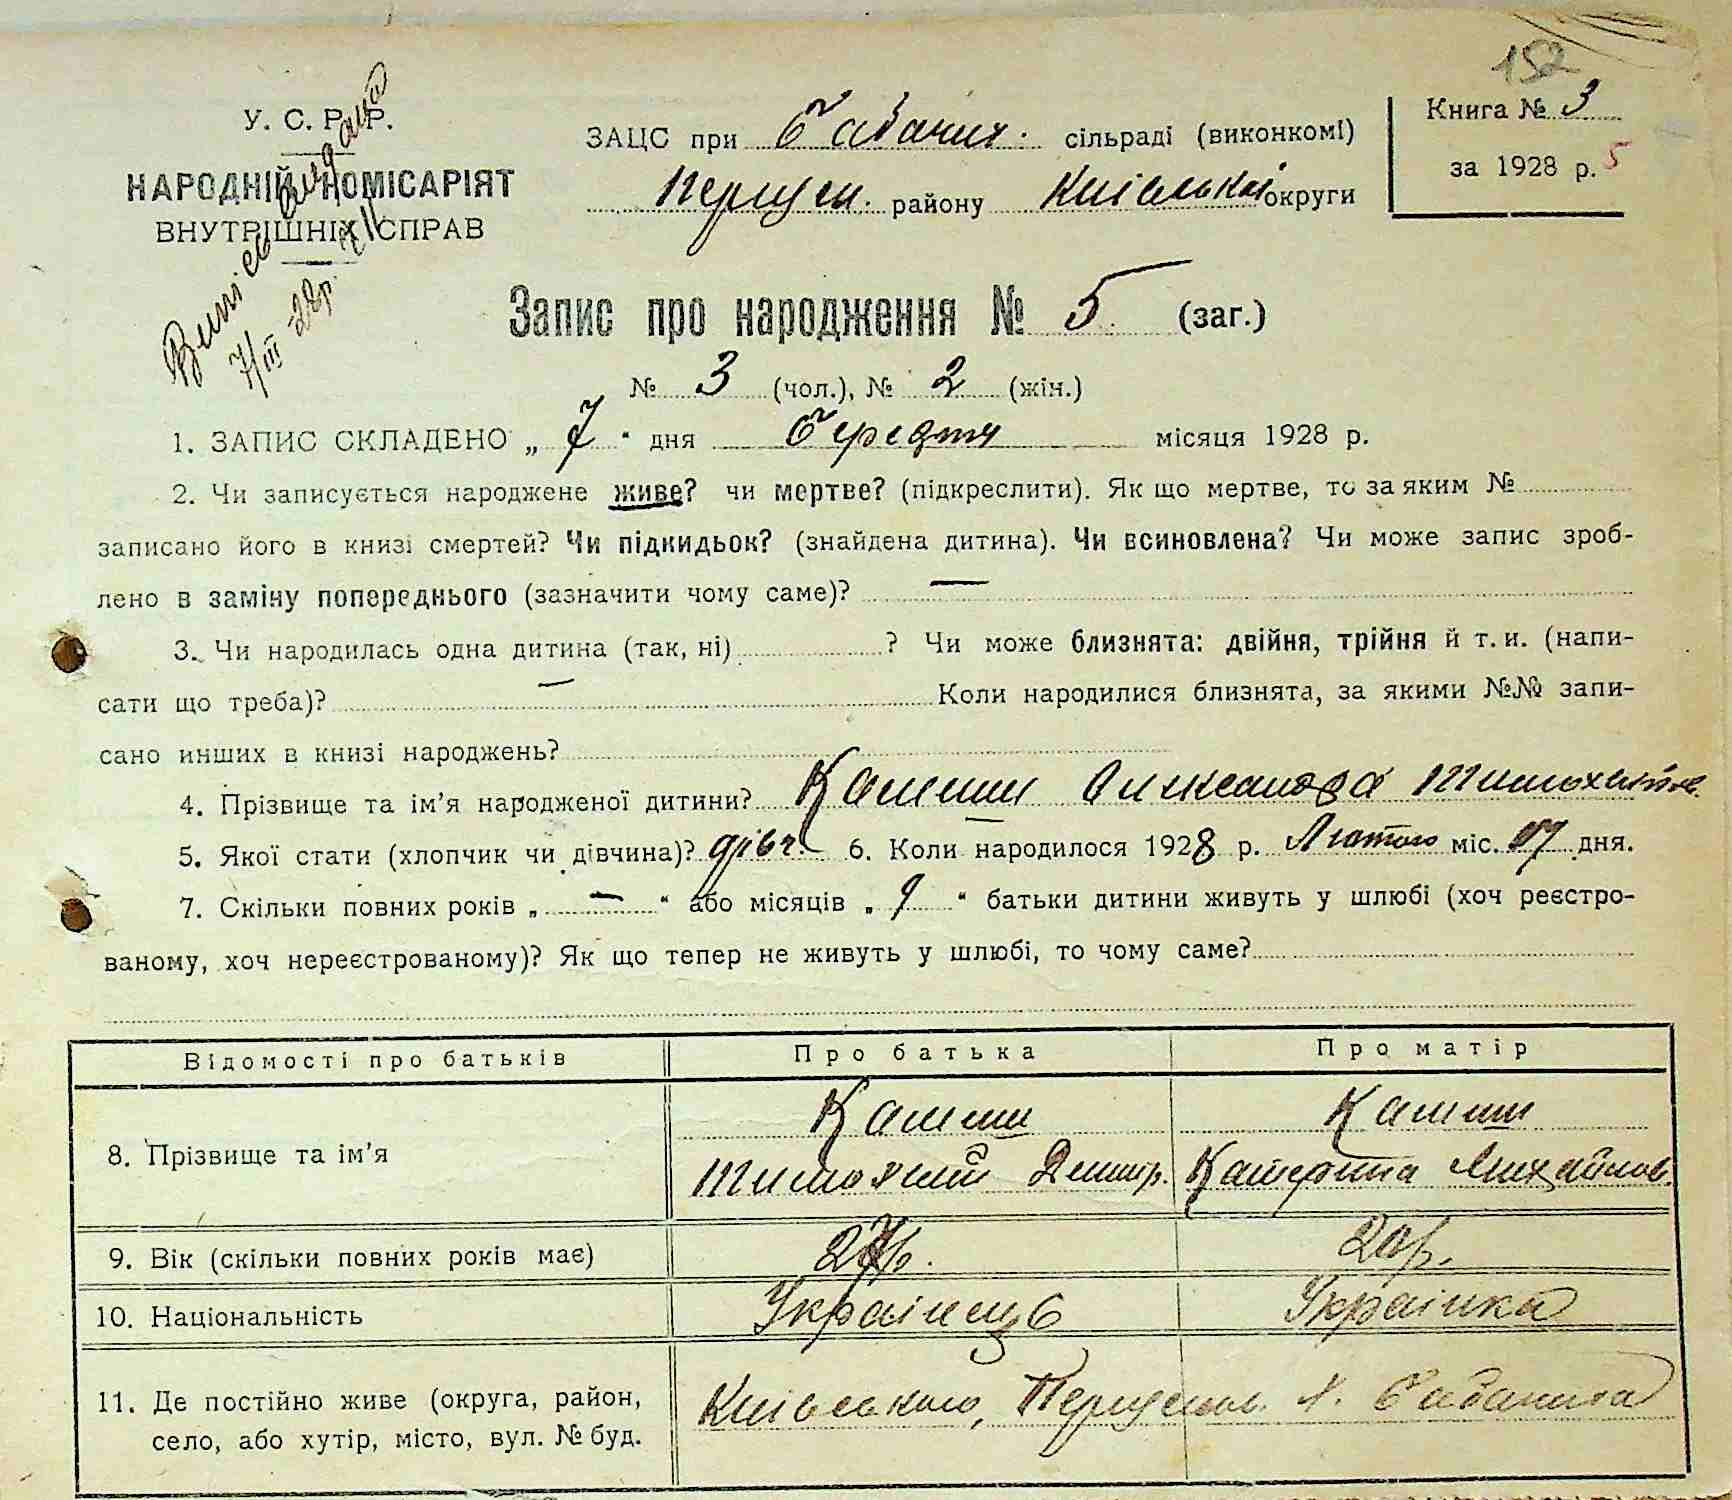 152
У. С. Р. Р.
НАРОДНІЙ КОМІСАРІЯТ
ВНУТРІШНІХ СПРАВ
7/III 28р.
ЗАЦС при сільраді (виконкомі)
району Київської округи
Книга № 3
за 1928 р. 5
Запис про народження № 5 (заг.)
№ 3 (чол.), № 2 (жін.)
1. ЗАПИС СКЛАДЕНО „ 7 “ дня Середня місяця 1928 р.
2. Чи записується народжене живе? чи мертве? (підкреслити). Як що мертве, то за яким №
записано його в книзі смертей? Чи підкидьок? (знайдена дитина). Чи всиновлена? Чи може запис зроб-
лено в заміну попереднього (зазначити чому саме)? —
3. Чи народилась одна дитина (так, ні) ? Чи може близнята: двійня, трійня й т. и. (напи-
сати що треба)? — Коли народилися близнята, за якими №№ запи-
сано инших в книзі народжень?
4. Прізвище та ім’я народженої дитини? Александра
5. Якої стати (хлопчик чи дівчина)? дівч. 6. Коли народилося 1928 р. Лютого міс. 17 дня.
7. Скільки повних років „ — “ або місяців „ 9 “ батьки дитини живуть у шлюбі (хоч реєстро-
ваному, хоч нереєстрованому)? Як що тепер не живуть у шлюбі, то чому саме?
Відомості про батьків Про батька Про матір
8. Прізвище та ім’я
Тимохвій Дмитр. Катерина Михайлов.
9. Вік (скільки повних років має) 20р.
10. Національність Українець Українка
11. Де постійно живе (округа, район,
село, або хутір, місто, вул. № буд.